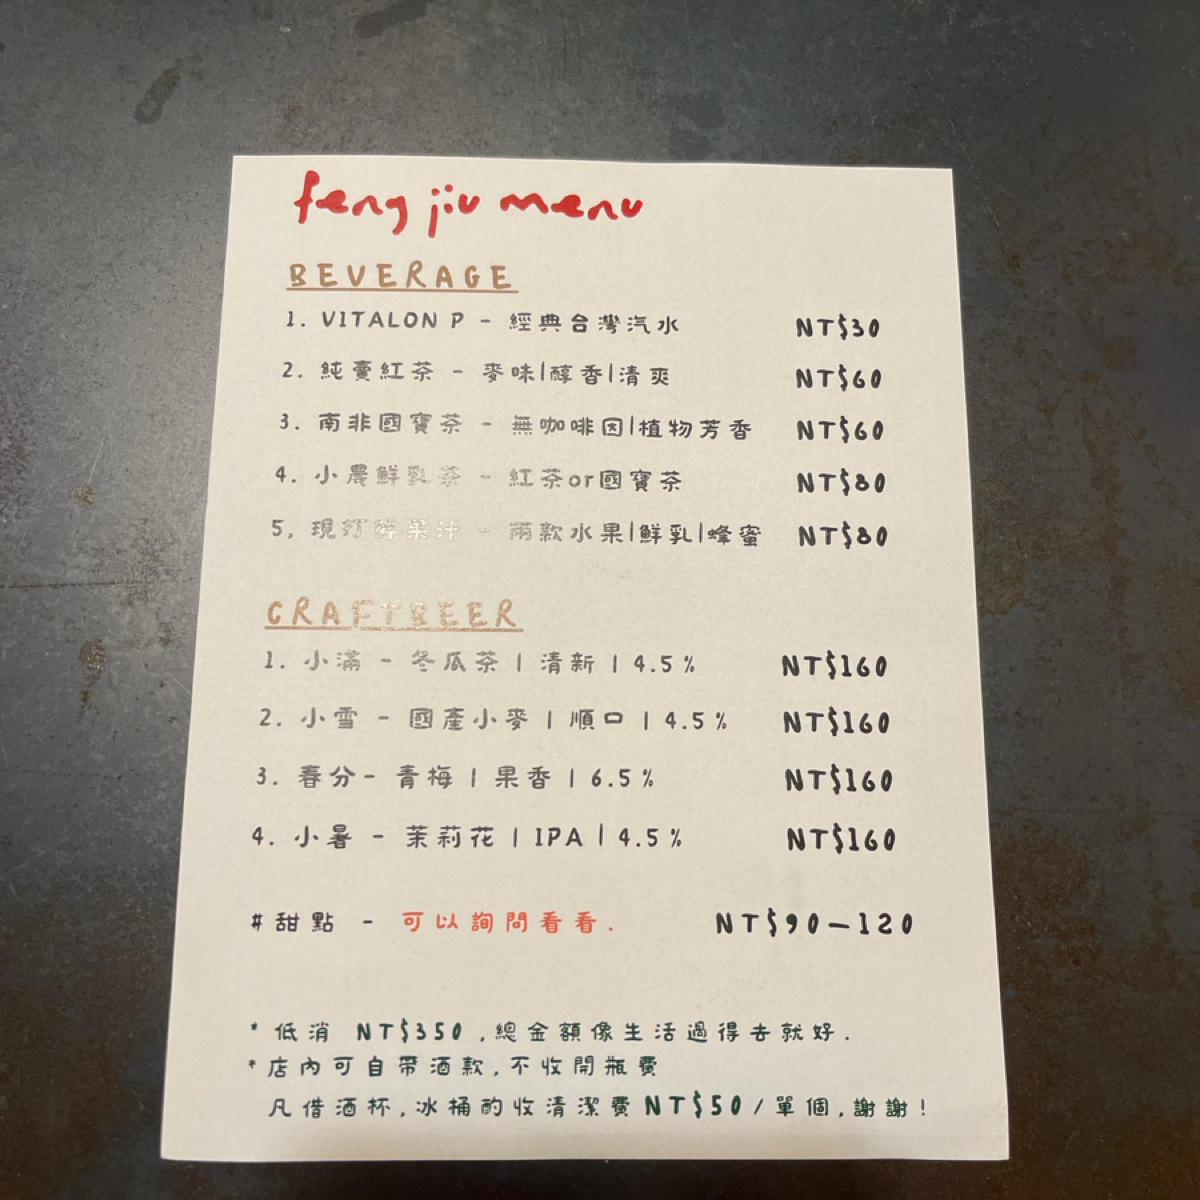 feng jiu menu
BEVERAGE
1. VITALON P - 經典台灣汽水 NT$30
2. 純賣紅茶 - 麥味|醇香|清爽 NT$60
3. 南非國寶茶 - 無咖啡因|植物芳香 NT$60
4. 小農鮮乳茶 - 紅茶or國寶茶 NT$80
5. 現打鮮果汁 - 兩款水果|鮮乳|蜂蜜 NT$80
CRAFTBEER
1. 小滿 - 冬瓜茶 | 清新 | 4.5% NT$160
2. 小雪 - 國產小麥 | 順口 | 4.5% NT$160
3. 春分- 青梅 | 果香 | 6.5% NT$160
4. 小暑 - 茉莉花 | IPA | 4.5% NT$160
#甜點 - 可以詢問看看. NT$90-120
*低消 NT$350,總金額像生活過得去就好.
*店內可自帶酒款,不收開瓶費
凡借酒杯,冰桶酌收清潔費NT$50/單個,謝謝!